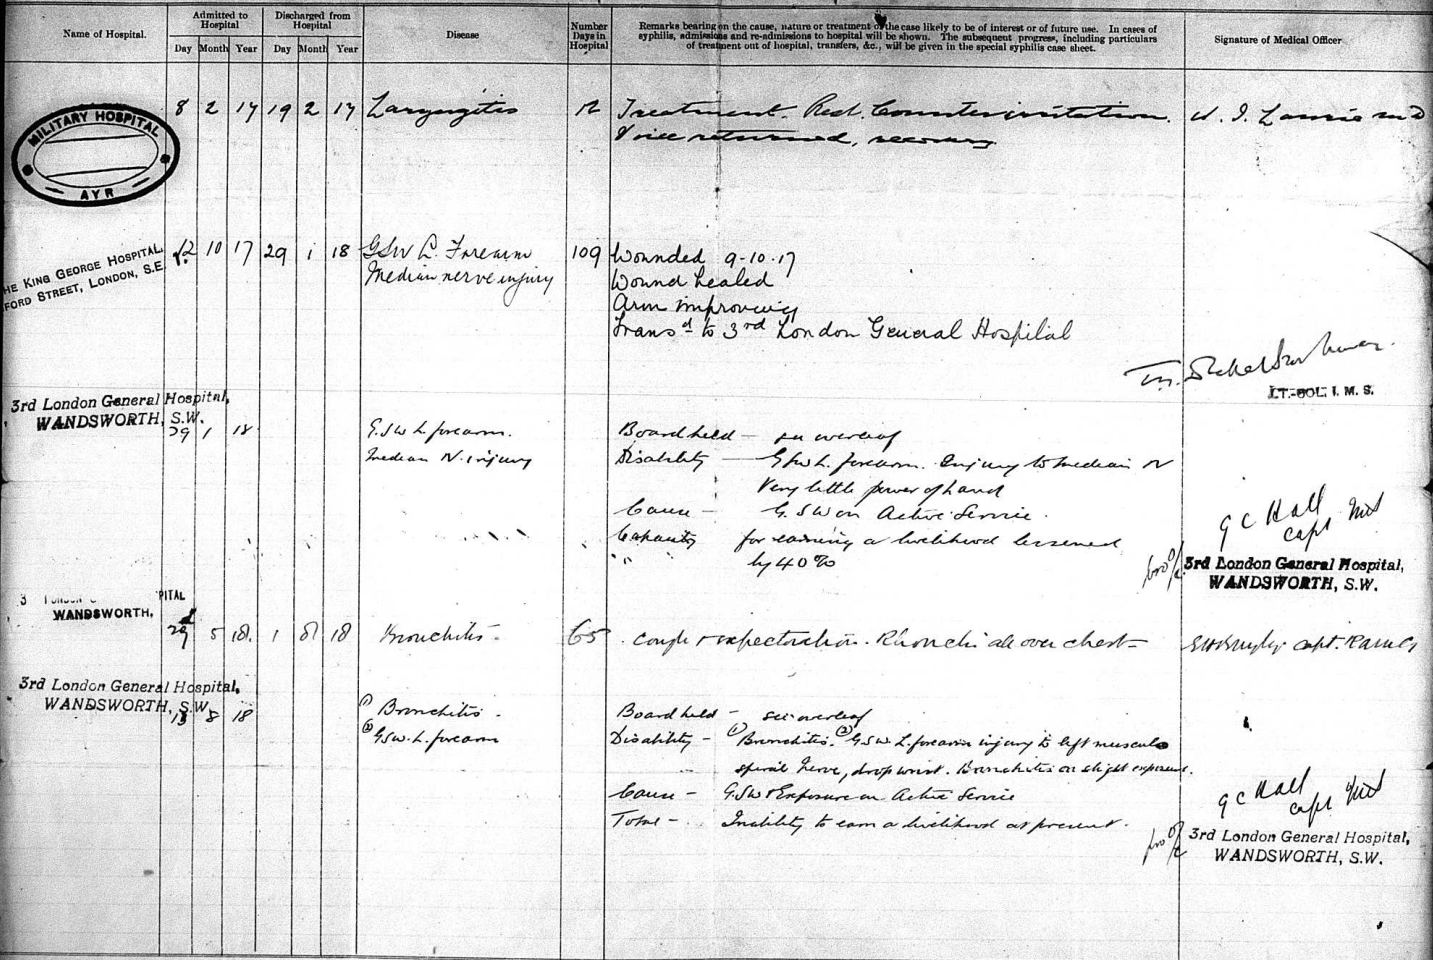 Name of Hospital.
Admitted to Hospital
Day Month Year
Discharged from Hospital
Day Month Year
Disease
Number Days in Hospital
Remarks bearing on the cause, nature or treatment of the case likely to be of interest or of future use. In cases of
syphilis, admissions and re-admissions to hospital will be shown. The subsequent progress, including particulars
of treatment out of hospital, transfers, &c., will be given in the special syphilis case sheet.
Signature of Medical Officer
MILITARY HOSPITAL
AYR
8 2 17 19 2 17 Laryngitis 12 Treatment. Rest. Counterirritation.
Voice returned, recovery
HE KING GEORGE HOSPITAL,
FORD STREET, LONDON, S.E.
12 10 17 29 1 18 GSW L. Forearm 109 Wounded 9-10-17
Median nerve injury Wound healed
Arm improving
Transd to 3rd London General Hospital
LT.-COL. I. M. S.
3rd London General Hospital,
WANDSWORTH, S.W.
29 1 18 G.S.W L. forearm. Board held — see overleaf
Median N. injury Disability — GSW L. forearm. Injury to median N
Very little power of hand
Cause — G.S.W on Active Service.
Capacity for earning a livelihood lessened
by 40%
G C Hall
Capt
3rd London General Hospital,
WANDSWORTH, S.W.
PITAL
WANDSWORTH,
29 5 18. 1 8 18 Bronchitis - 65 cough & expectoration. Rhonchi all over chest — Capt. RAMC
3rd London General Hospital,
WANDSWORTH, S.W.
13 8 18 (1) Bronchitis. Board held — see overleaf
(2) GSW. L. forearm Disability — (1) Bronchitis. (2) G.S.W. L. forearm injury to left musculo
spiral nerve, drop wrist. Bronchitis on slight exposure.
Cause — G.S.W & Exposure on Active Service
Total — Inability to earn a livelihood at present.
G C Hall
Capt
3rd London General Hospital,
WANDSWORTH, S.W.